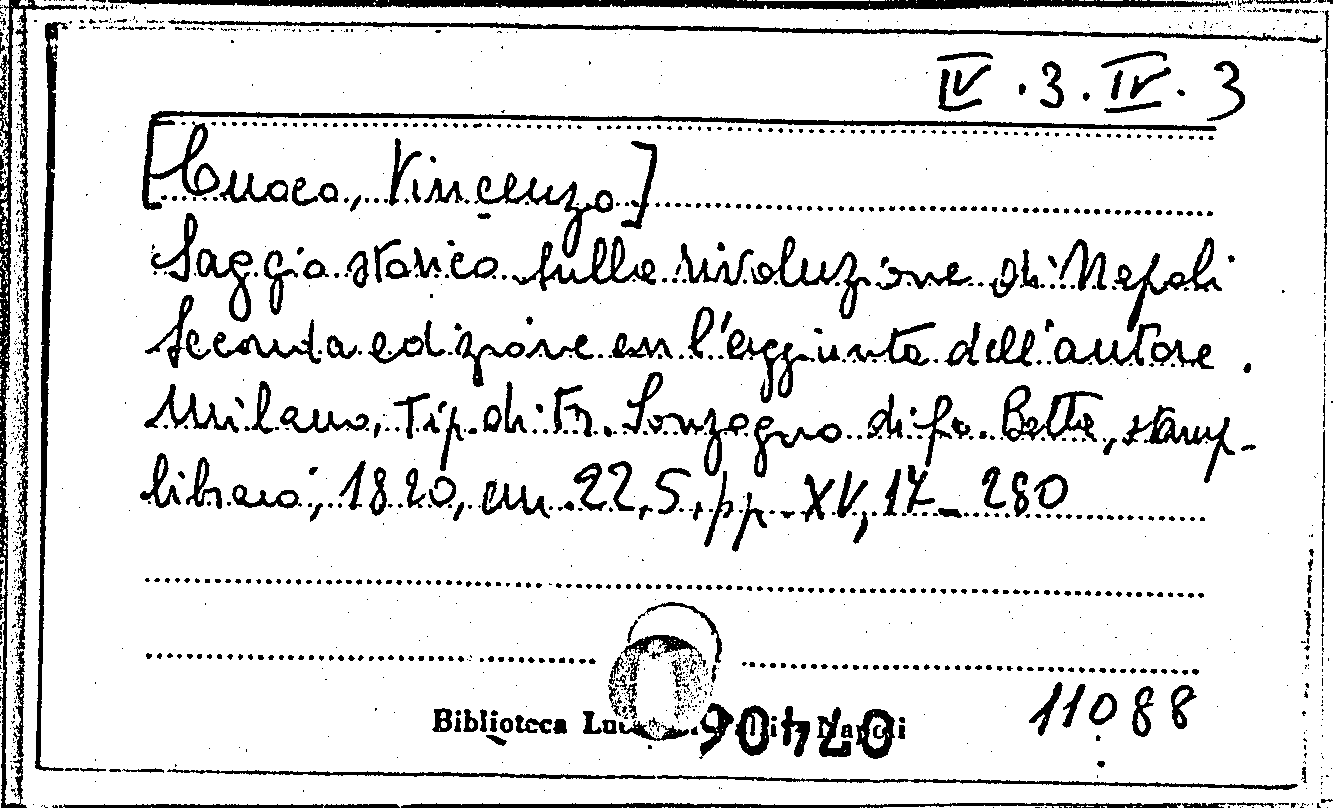 IV . 3 . IV . 3
[Cuoco, Vincenzo]
Saggio storico sulla rivoluzione di Napoli
Seconda edizione con l'aggiunta dell'autore .
Milano, Tip. di Fr. Sonzogno di fu. Batta, stamp-
libraio, 1820, cm. 22,5, pp. XV, 17-280
11088
Biblioteca Napoli
07406